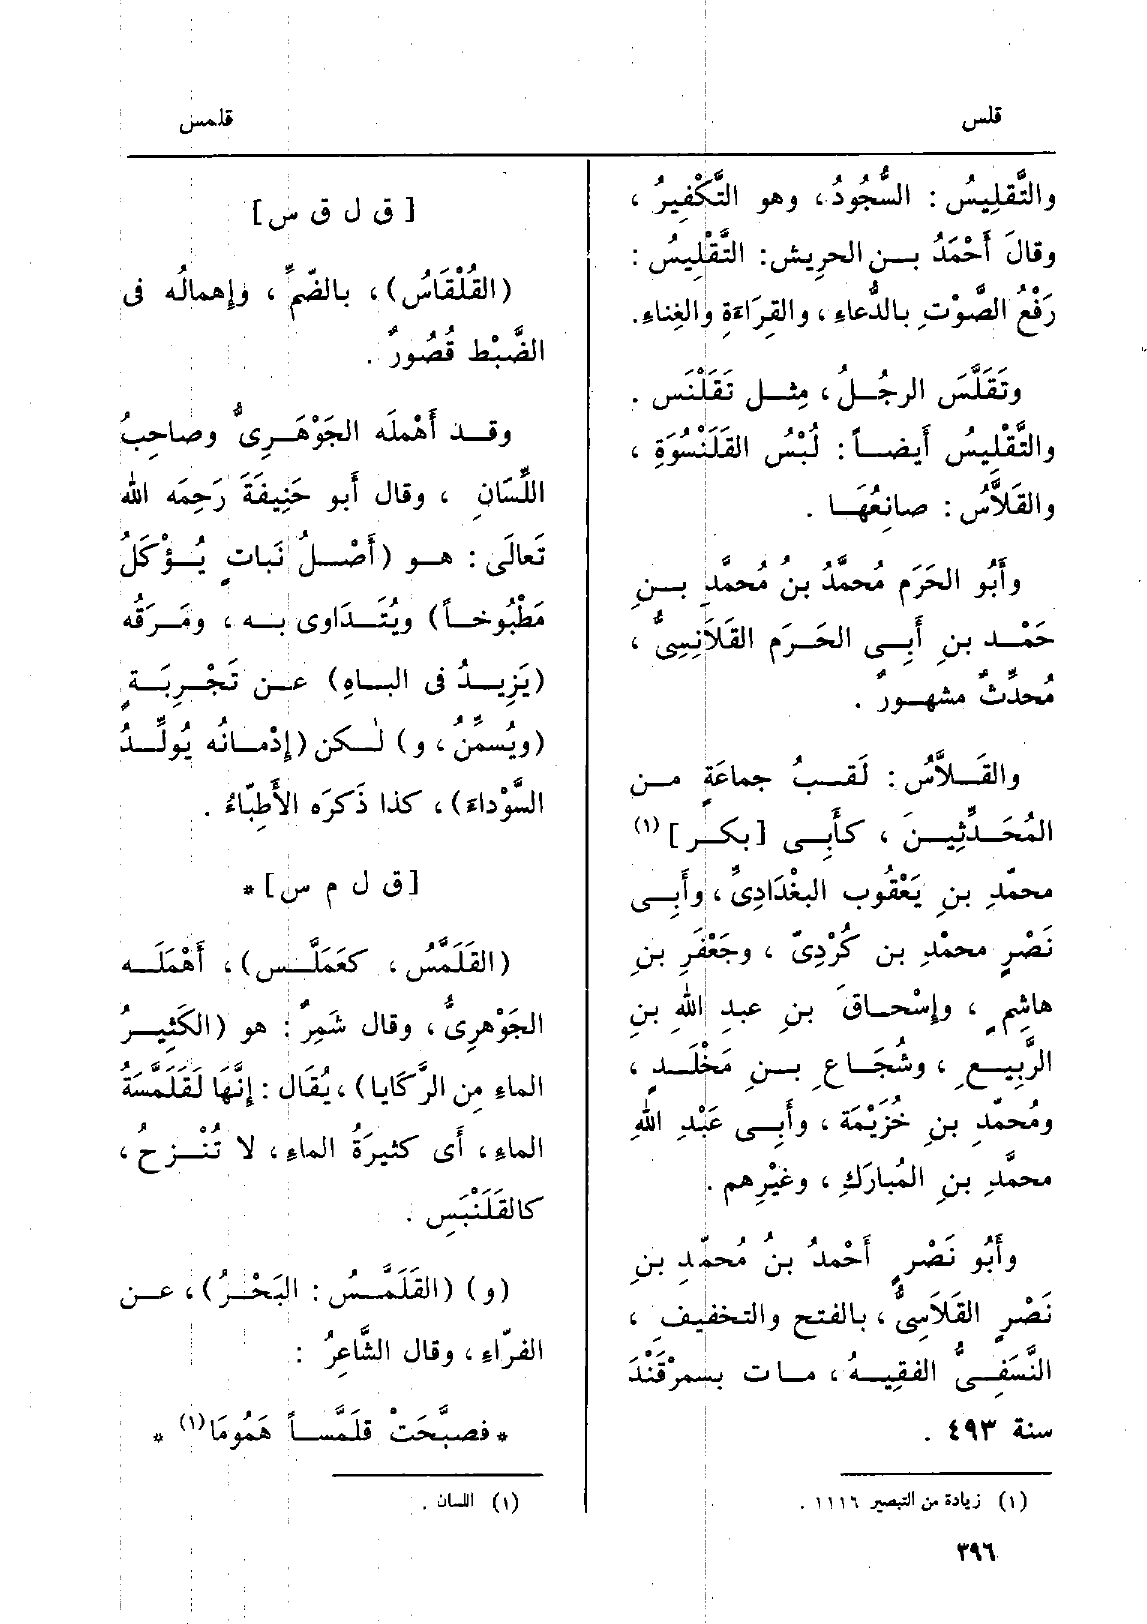 قلس
قلمس
والتَّقلِيسُ : السُّجُودُ ، وهو التَّكْفِيرُ ،
وقالَ أَحْمَدُ بـن الحرِيش: التَّقْلِيسُ :
رَفْعُ الصَّوْتِ بالدُّعاءِ ، والقِرَاءَةِ والغِناءِ.
وتَقَلَّسَ الرجُـلُ ، مِثـل تَقَلْنَس .
والتَّقْلِيسُ أَيضـاً : لُبْسُ القَلَنْسُوَةِ ،
والقَلاَّسُ : صانِعُهَـا .
وأَبُو الحَرَم مُحمَّدُ بنُ مُحمَّدِ بـنِ
حَمْـد بنِ أَبِـى الحَـرَم القَلاَنِسِىُّ ،
مُحدِّثٌ مشهـورٌ .
والقَـلاَّسُ : لَقـبُ جماعَةٍ مـن
المُحَـدِّثِيـنَ ، كأَبِـى [بكـر] (١)
محمّدِ بنِ يَعْقُوب البغْدَادِىِّ ، وأَبِـى
نَصْرٍ محمْدِ بن كُرْدِىّ ، وجَعْفَرِ بنِ
هاشِمٍ ، وإِسْحـاقَ بنِ عبدِ اللهِ بنِ
الرَّبِيـعِ ، وشُجَـاعِ بـنِ مَخْلَـدٍ ،
ومُحمّدِ بنِ خُزَيْمَة ، وأَبِـى عَبْدِ اللهِ
محمَّدِ بنِ المُبارَكِ ، وغيْرِهم .
وأَبُو نَصْرٍ أَحْمدُ بنُ مُحمّدِ بنِ
نَصْرٍ القَلاَسِىُّ ، بالفتح والتخفيفِ ،
النَّسَفِـىُّ الفقِيـهُ ، مـات بسمرْقَنْدَ
سنة ٤٩٣ .
(١) زيادة من التبصير ١١١٦ .
[ ق ل ق س ]
(القُلْقَاسُ) ، بالضّمِّ ، وإِهمالُه فى
الضَّبْط قُصُورٌ .
وقـد أَهْملَه الجَوْهَـرِىُّ وصاحِبُ
اللِّسَانِ ، وقال أَبو حَنِيفَةَ رَحِمَه الله
تَعالَى : هـو (أَصْـلُ نَباتٍ يُـؤْكَلُ
مَطْبُوخـاً) ويُتَـدَاوى بـه ، ومَـرَقُه
(يَزِيـدُ فى البـاهِ) عـن تَجْرِبَـةٍ
(ويُسمِّنُ ، و) لٰـكن (إِدْمـانُه يُولِّـدُ
السَّوْداءَ) ، كذا ذَكرَه الأَطِبّاءُ .
[ق ل م س] *
(القَلَمَّسُ ، كعَمَلَّـس) ، أَهْمَلَـه
الجَوْهرِىُّ ، وقال شَمِرٌ : هو (الكَثِيـرُ
الماءِ مِن الرَّكايا) ، يُقَال : إِنَّهَا لَقَلَمَّسَةُ
الماءِ ، أَى كثيرَةُ الماءِ ، لا تُنْـزحُ ،
كالقَلَنْبَسِ .
(و) (القَلَمَّـسُ : البَحْـرُ) ، عـن
الفرّاءِ ، وقال الشَّاعِرُ :
* فصبَّحَتْ قلَمَّسـاً هَمُومَا (١) *
(١) اللسان .
٣٩٦